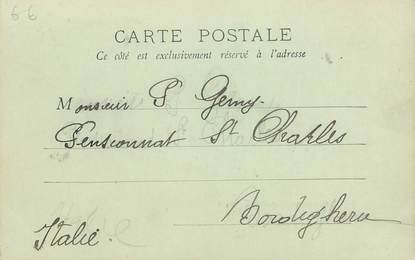 6-6
CARTE POSTALE
Ce côté est exclusivement réservé à l'adresse
Monsieur P Gemy.
Pensionnat St Charles
Bordighera
Italie.